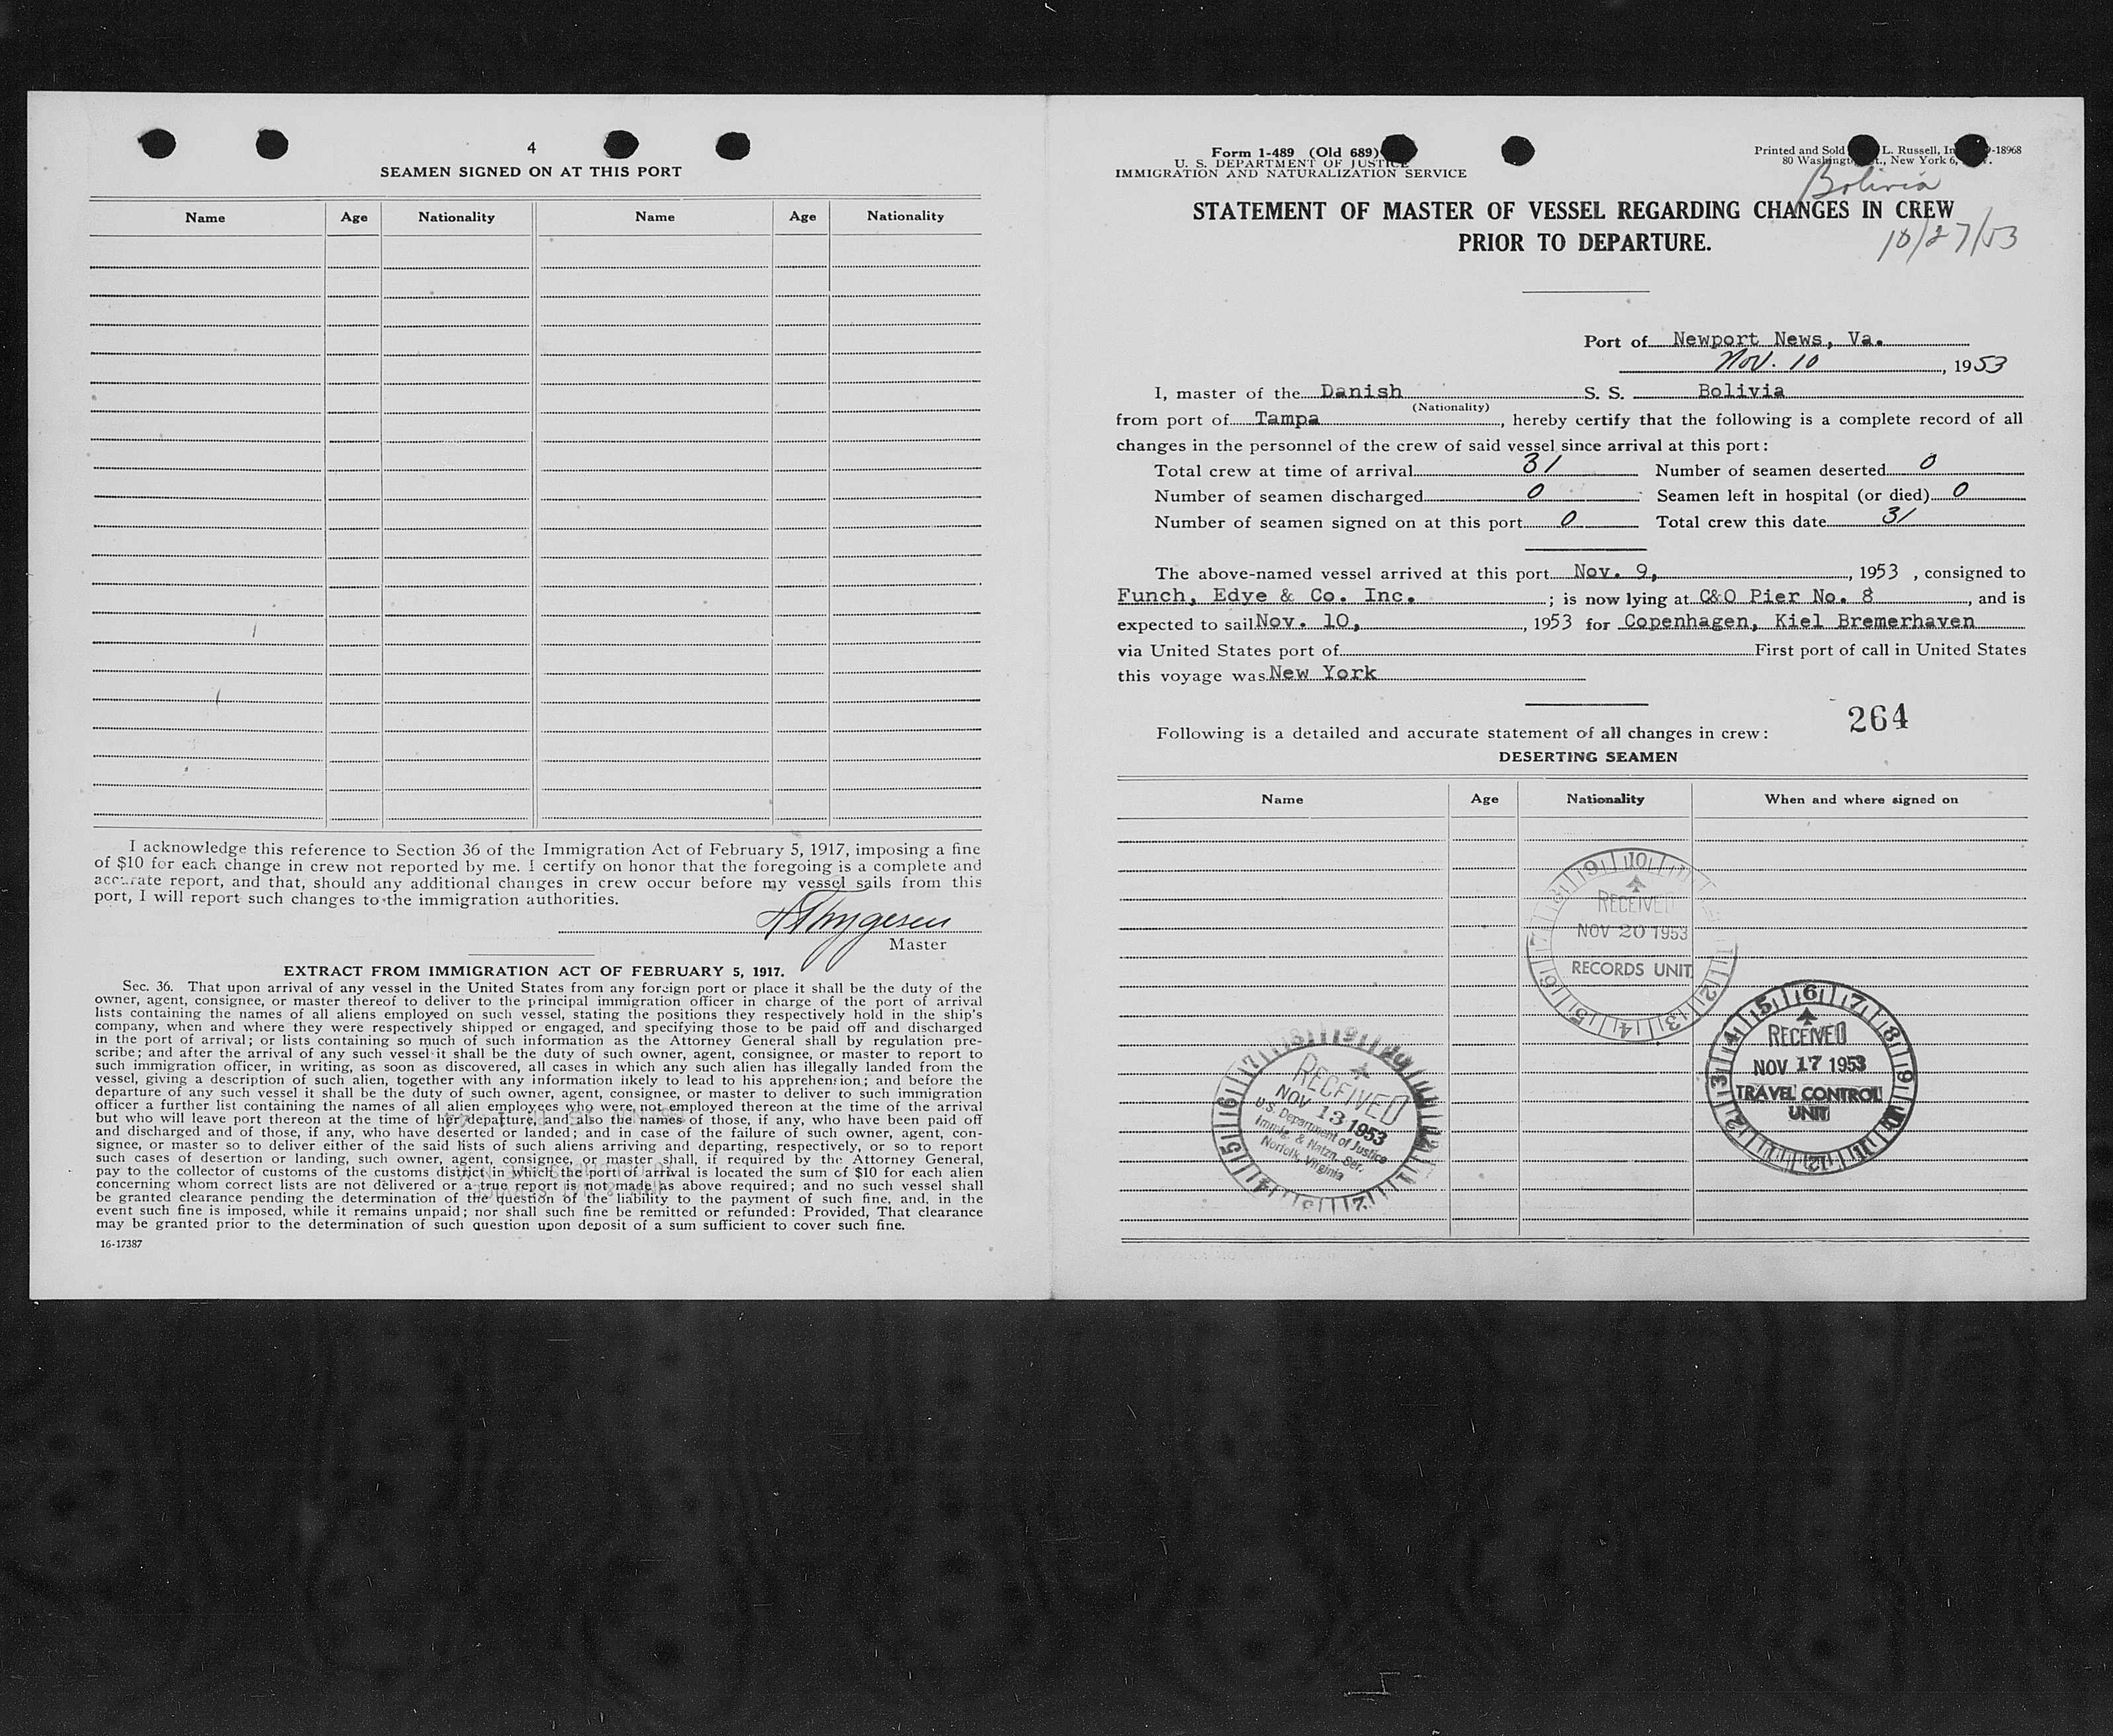 4
SEAMEN SIGNED ON AT THIS PORT
Name Age Nationality Name Age Nationality
I acknowledge this reference to Section 36 of the Immigration Act of February 5, 1917, imposing a fine
of $10 for each change in crew not reported by me. I certify on honor that the foregoing is a complete and
accurate report, and that, should any additional changes in crew occur before my vessel sails from this
port, I will report such changes to the immigration authorities.
Master
EXTRACT FROM IMMIGRATION ACT OF FEBRUARY 5, 1917.
Sec. 36. That upon arrival of any vessel in the United States from any foreign port or place it shall be the duty of the
owner, agent, consignee, or master thereof to deliver to the principal immigration officer in charge of the port of arrival
lists containing the names of all aliens employed on such vessel, stating the positions they respectively hold in the ship's
company, when and where they were respectively shipped or engaged, and specifying those to be paid off and discharged
in the port of arrival; or lists containing so much of such information as the Attorney General shall by regulation pre-
scribe; and after the arrival of any such vessel it shall be the duty of such owner, agent, consignee, or master to report to
such immigration officer, in writing, as soon as discovered, all cases in which any such alien has illegally landed from the
vessel, giving a description of such alien, together with any information likely to lead to his apprehension; and before the
departure of any such vessel it shall be the duty of such owner, agent, consignee, or master to deliver to such immigration
officer a further list containing the names of all alien employees who were not employed thereon at the time of the arrival
but who will leave port thereon at the time of her departure, and also the names of those, if any, who have been paid off
and discharged and of those, if any, who have deserted or landed; and in case of the failure of such owner, agent, con-
signee, or master so to deliver either of the said lists of such aliens arriving and departing, respectively, or so to report
such cases of desertion or landing, such owner, agent, consignee, or master shall, if required by the Attorney General,
pay to the collector of customs of the customs district in which the port of arrival is located the sum of $10 for each alien
concerning whom correct lists are not delivered or a true report is not made as above required; and no such vessel shall
be granted clearance pending the determination of the question of the liability to the payment of such fine, and, in the
event such fine is imposed, while it remains unpaid; nor shall such fine be remitted or refunded: Provided, That clearance
may be granted prior to the determination of such question upon deposit of a sum sufficient to cover such fine.
16-17387
Form 1-489 (Old 689)
U. S. DEPARTMENT OF JUSTICE
IMMIGRATION AND NATURALIZATION SERVICE
Printed and Sold L. Russell, -18968
80 New York 6,
Bolivia
STATEMENT OF MASTER OF VESSEL REGARDING CHANGES IN CREW
PRIOR TO DEPARTURE.
10/27/53
Port of Newport News, Va.
Nov. 10, 1953
I, master of the Danish S. S. Bolivia
(Nationality)
from port of Tampa, hereby certify that the following is a complete record of all
changes in the personnel of the crew of said vessel since arrival at this port:
Total crew at time of arrival 31 Number of seamen deserted 0
Number of seamen discharged 0 Seamen left in hospital (or died) 0
Number of seamen signed on at this port 0 Total crew this date 31
The above-named vessel arrived at this port Nov. 9, , 1953 , consigned to
Funch, Edye & Co. Inc. ; is now lying at C&O Pier No. 8 , and is
expected to sail Nov. 10, , 1953 for Copenhagen, Kiel Bremerhaven
via United States port of First port of call in United States
this voyage was New York
264
Following is a detailed and accurate statement of all changes in crew:
DESERTING SEAMEN
Name Age Nationality When and where signed on
RECEIVED
NOV 20 1953
RECORDS UNIT
RECEIVED
NOV 17 1953
TRAVEL CONTROL
UNIT
RECEIVED
NOV 13 1953
U.S. Department of Justice
Immig. & Natzn. Ser.
Norfolk, Virginia